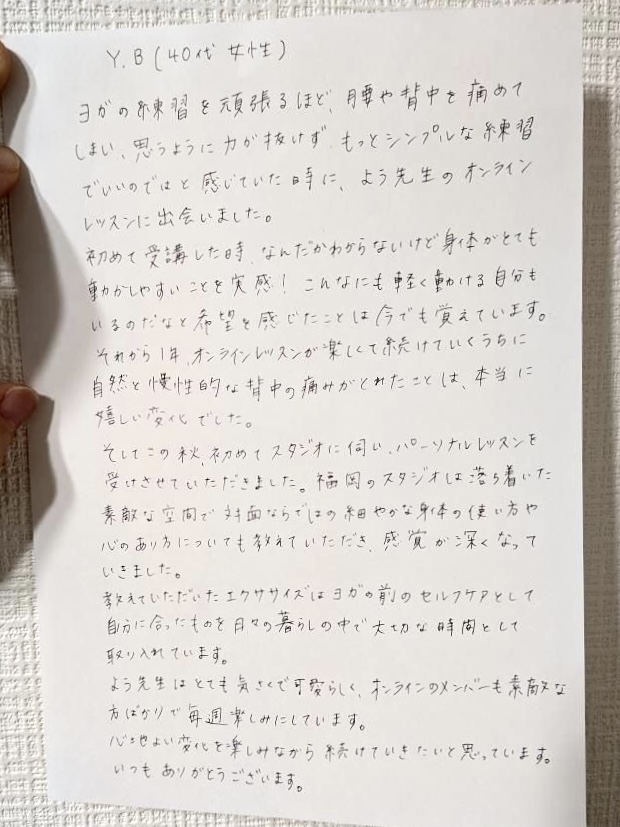 Y.B(40代 女性)
ヨガの練習を頑張るほど、腰や背中を痛めて
しまい、思うように力が抜けず、もっとシンプルな練習
でいいのではと感じていた時に、よう先生のオンライン
レッスンに出会いました。
初めて受講した時、なんだかわからないけど身体がとても
動かしやすいことを実感! こんなにも軽く動ける自分も
いるのだなと希望を感じたことは今でも覚えています。
それから1年、オンラインレッスンが楽しくて続けていくうちに
自然と慢性的な背中の痛みがとれたことは、本当に
嬉しい変化でした。
そしてこの秋、初めてスタジオに伺い、パーソナルレッスンを
受けさせていただきました。福岡のスタジオは落ち着いた
素敵な空間で対面ならではの細やかな身体の使い方や
心のあり方についても教えていただき、感覚が深くなって
いきました。
教えていただいたエクササイズはヨガの前のセルフケアとして
自分に合ったものを日々の暮らしの中で大切な時間として
取り入れています。
よう先生はとても気さくで可愛らしく、オンラインのメンバーも素敵な
方ばかりで毎週楽しみにしています。
心地よい変化を楽しみながら続けていきたいと思っています。
いつもありがとうございます。